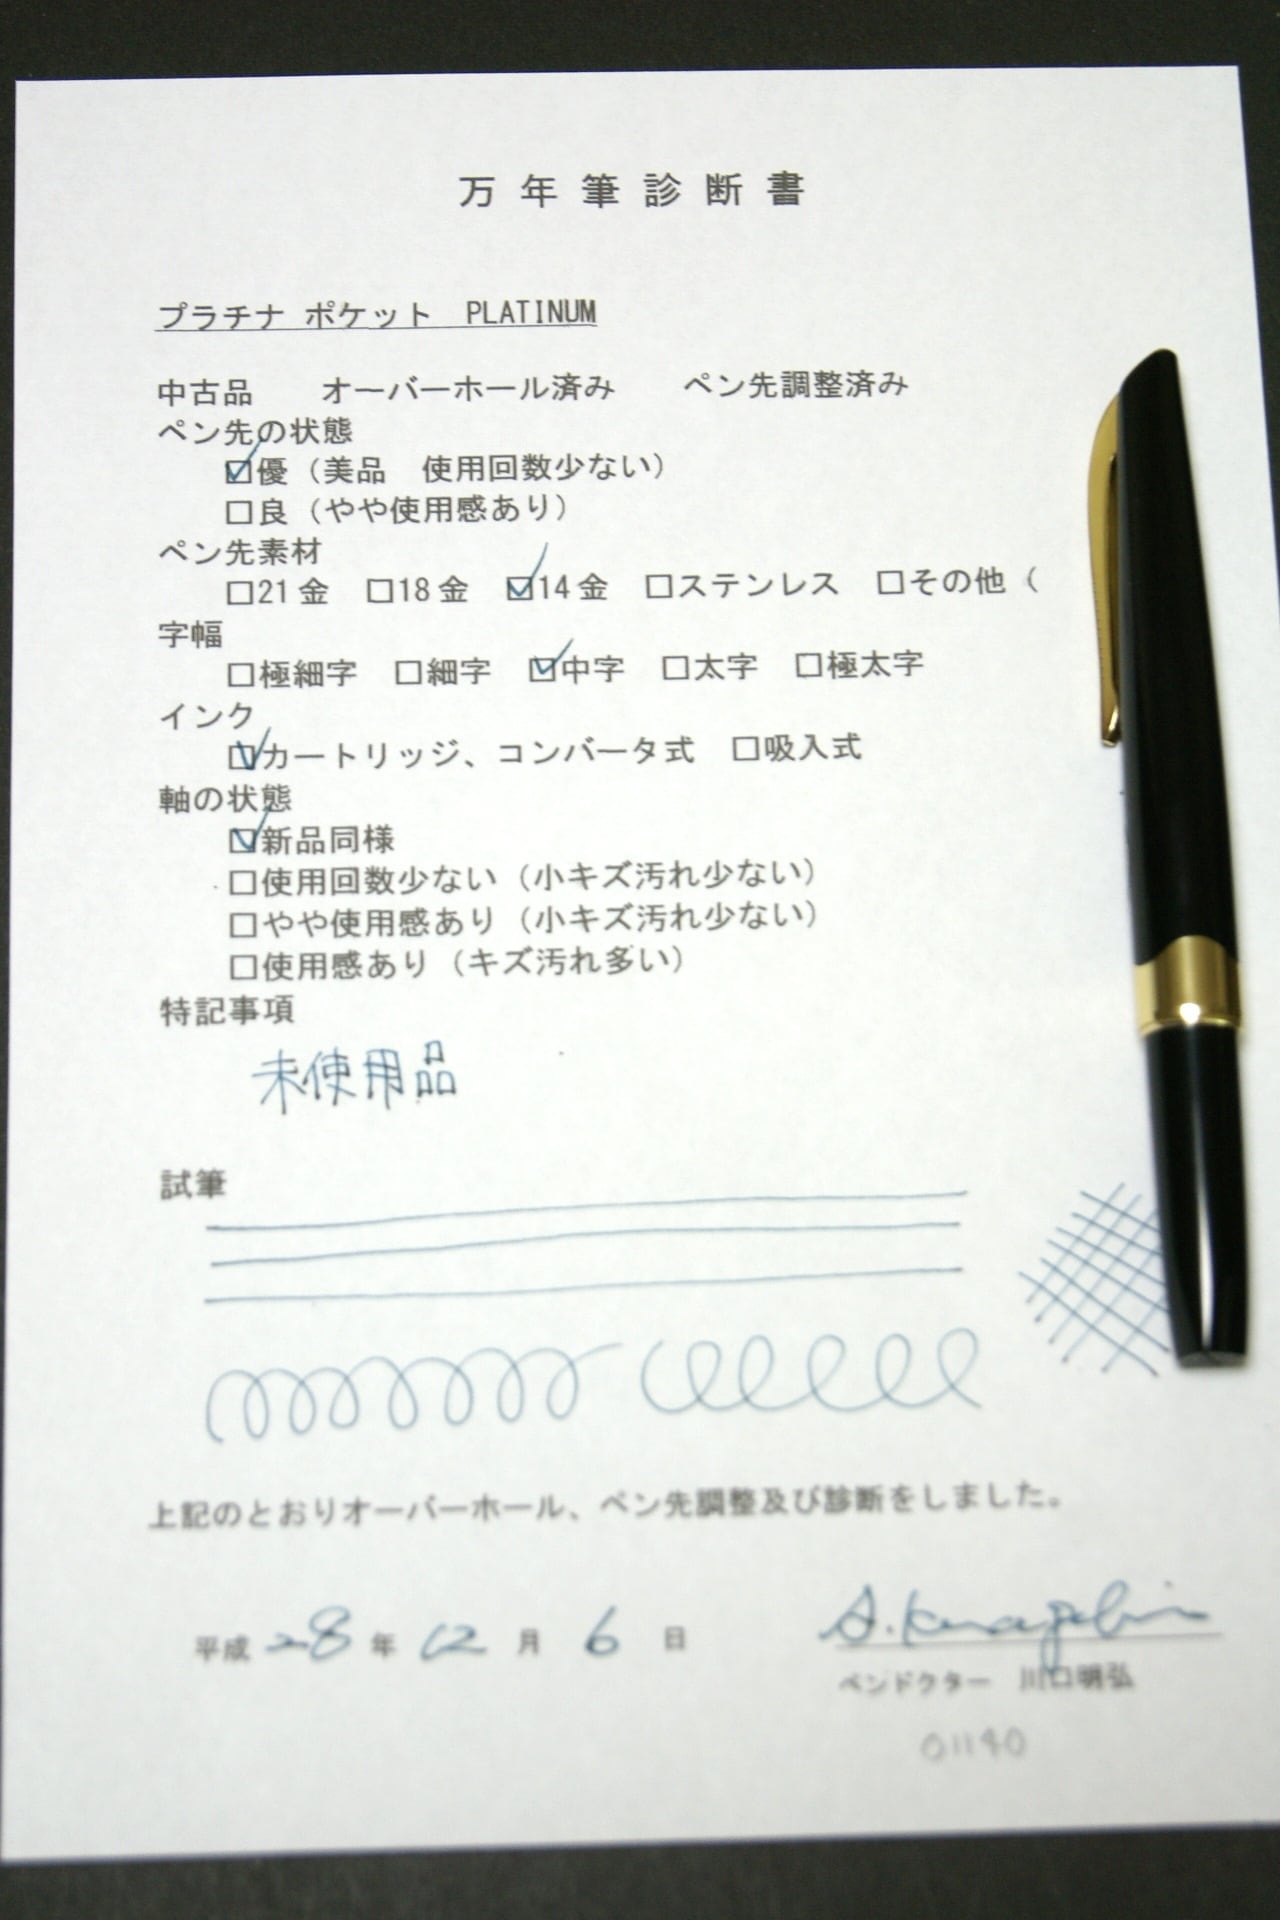 万年筆診断書
プラチナ ポケット PLATINUM
中古品 オーバーホール済み ペン先調整済み
ペン先の状態
☑優（美品 使用回数少ない）
□良（やや使用感あり）
ペン先素材
□21金 □18金 ☑14金 □ステンレス □その他（
字幅
□極細字 □細字 ☑中字 □太字 □極太字
インク
☑カートリッジ、コンバータ式 □吸入式
軸の状態
☑新品同様
□使用回数少ない（小キズ汚れ少ない）
□やや使用感あり（小キズ汚れ少ない）
□使用感あり（キズ汚れ多い）
特記事項
未使用品
試筆
上記のとおりオーバーホール、ペン先調整及び診断をしました。
平成 28 年 12 月 6 日
ペンドクター 川口明弘
01140